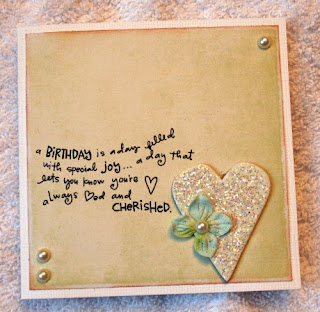 a BiRTHDAY is a day filled
with special joy... a day that
lets you know you're
always ♡ed and
CHERiSHeD.